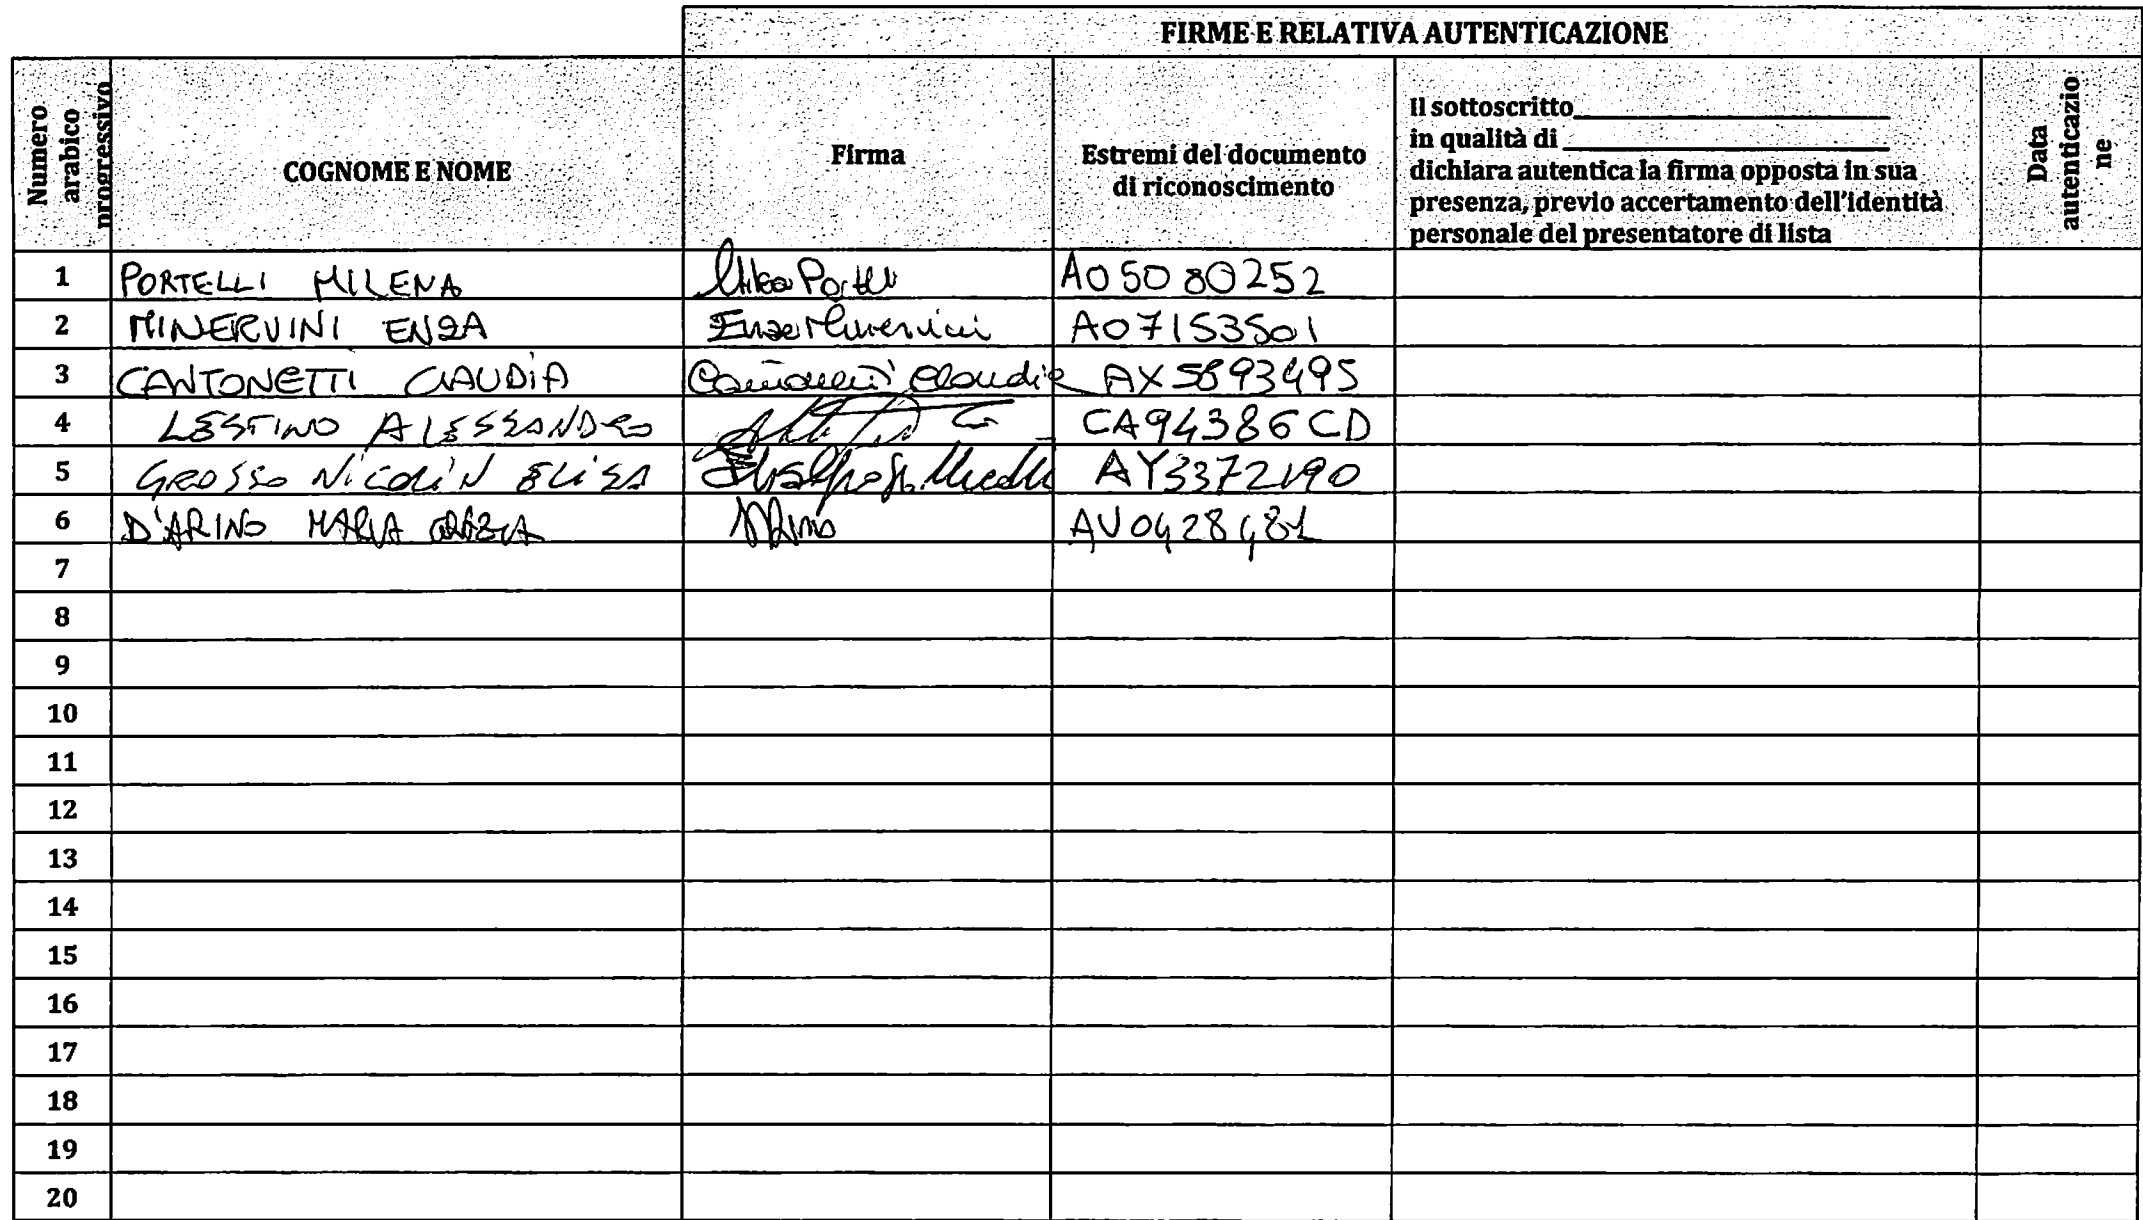 FIRME E RELATIVA AUTENTICAZIONE
Numero arabico progressivo
COGNOME E NOME
Firma
Estremi del documento
di riconoscimento
Il sottoscritto
in qualità di
dichiara autentica la firma opposta in sua
presenza, previo accertamento dell'identità
personale del presentatore di lista
Data autenticazio ne
1 PORTELLI MILENA A05080252
2 MINERVINI ENZA Enza Minervini A07153501
3 CANTONETTI CLAUDIA Claudia AX5893495
4 LESTINO ALESSANDRO CA94386CD
5 GROSSO NICOLIN ELISA
6 D'ARINO MARIA GRAZIA
7
8
9
10
11
12
13
14
15
16
17
18
19
20